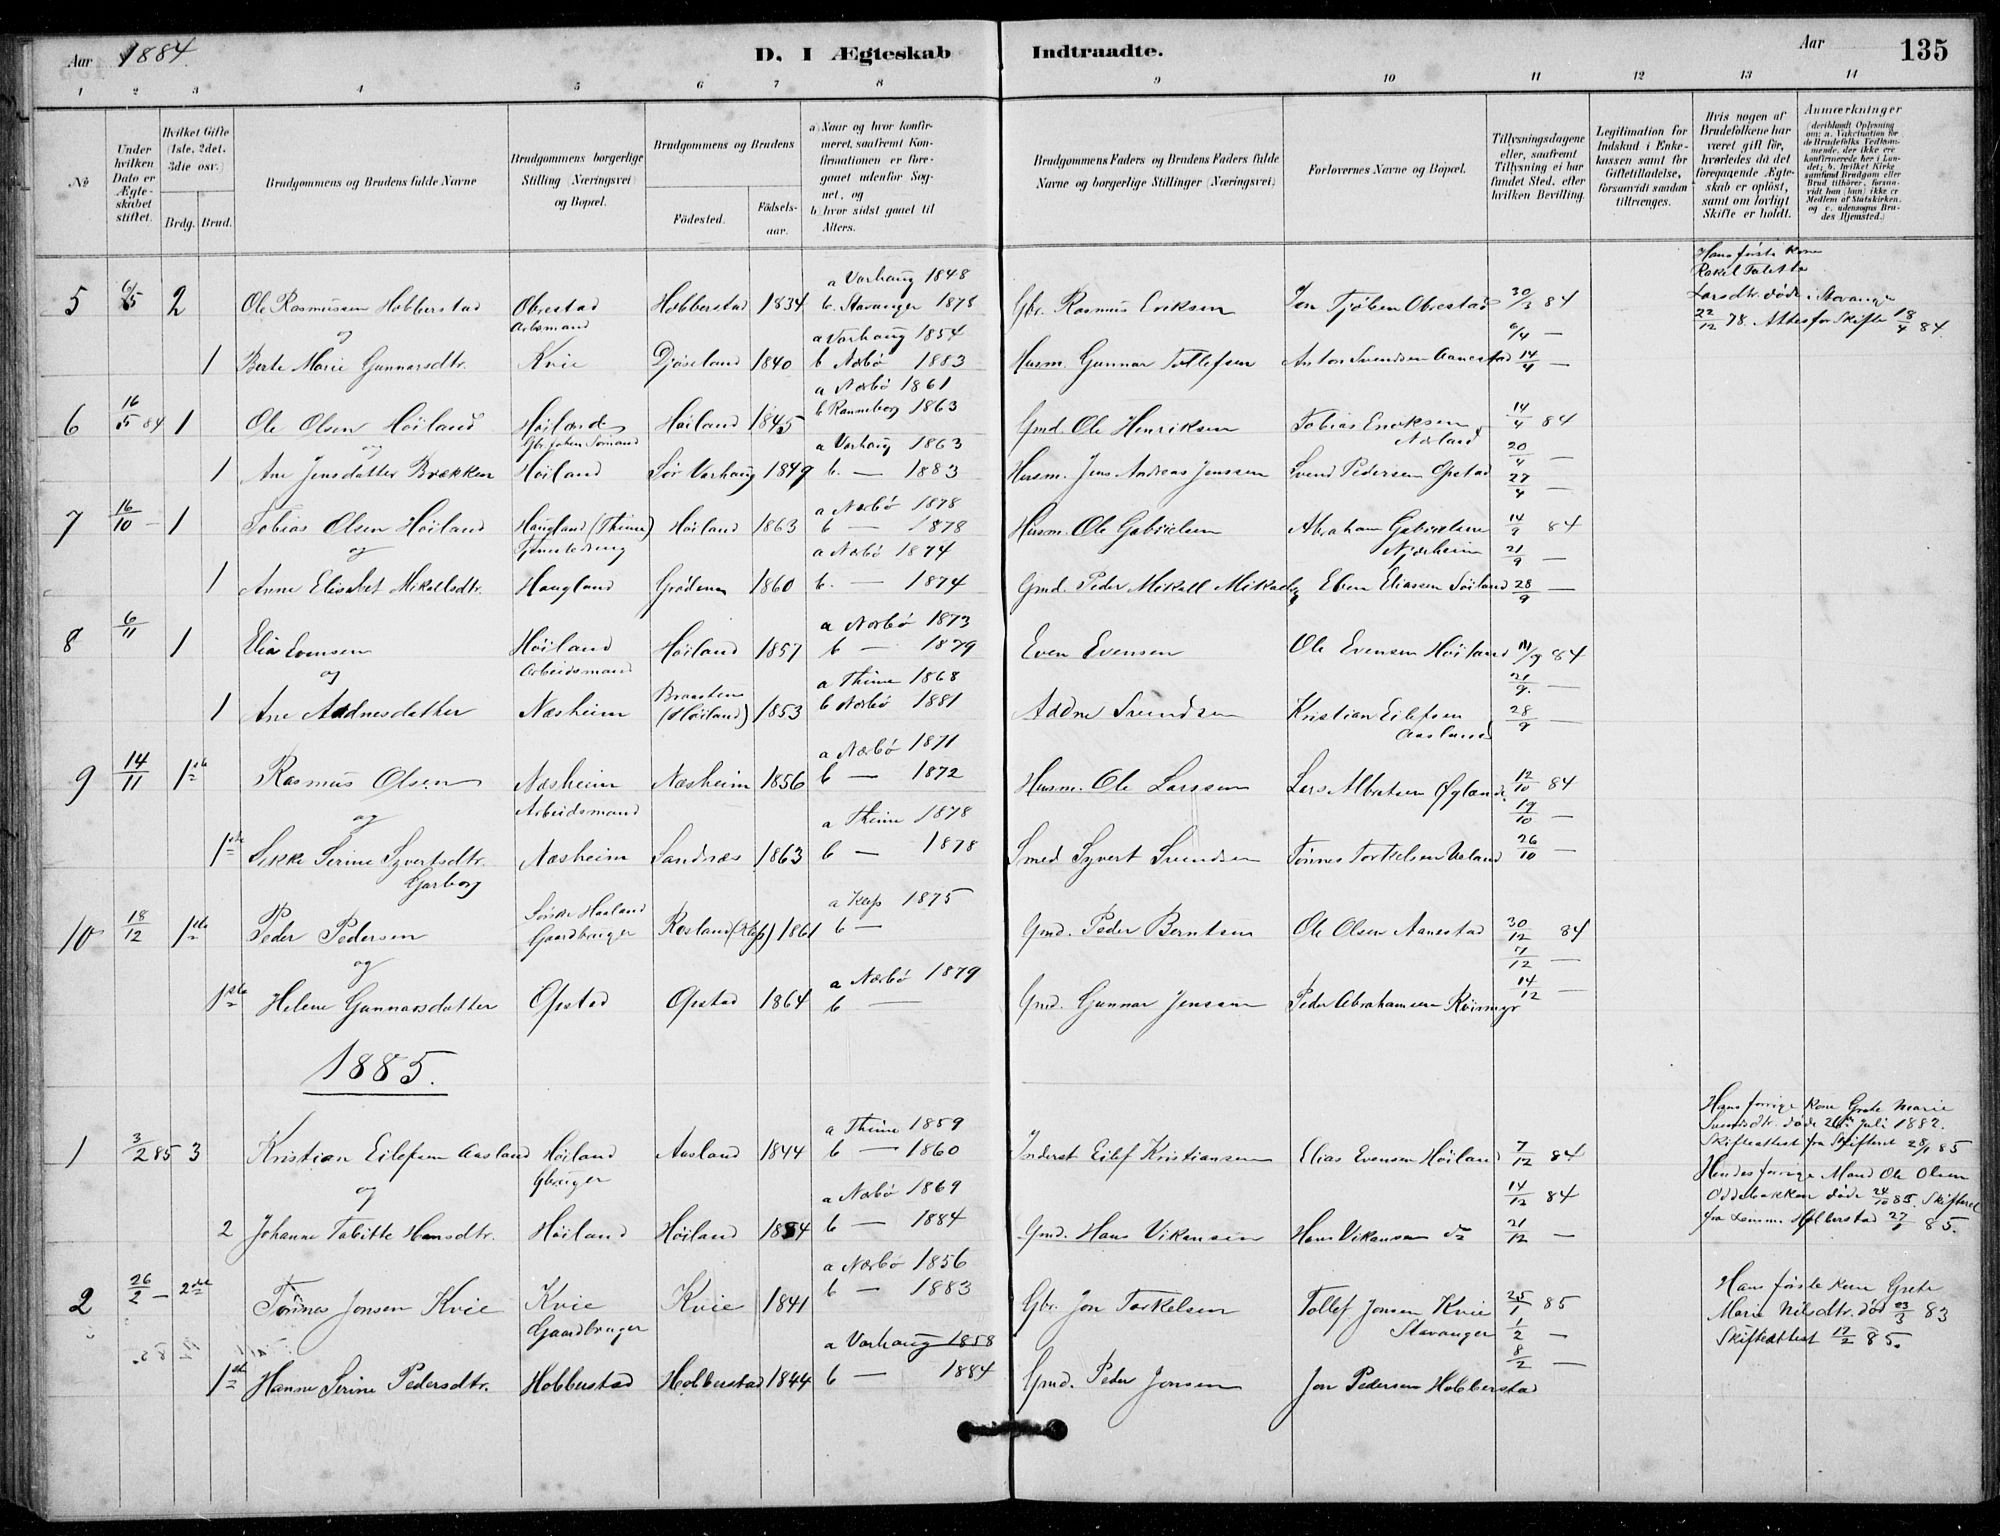 Aar 1884. D. I Ægteskab Indtraadte. Aar 135
1 2 3 4 5 6 7 8 9 10 11 12 13 14
No
Under hvilken Dato er Ægteskabet stiftet.
Hvilket Gifte (1ste, 2det, 3die osv.)
Brdg. Brud.
Brudgommens og Brudens fulde Navne
Brudgommens borgerlige Stilling (Næringsvei) og Bopæl.
Brudgommens og Brudens
Födested. Födselsaar.
a) Naar og hvor konfirmeret, saafremt Konfirmationen er foregaaet udenfor Sognet, og
b) hvor sidst gaaet til Alters.
Brudgommens Faders og Brudens Faders fulde Navne og borgerlige Stillinger (Næringsvei)
Forlovernes Navne og Bopæl.
Tillysningsdagene eller, saafremt Tillysning ei har fundet Sted, efter hvilken Bevilling.
Legitimation for Indskud i Enkekassen samt for Giftetilladelse, forsaavidt saadan tiltrænges.
Hvis nogen af Brudefolkene har været gift för, hvorledes da det foregaaende Ægteskab er oplöst, samt om lovligt Skifte er holdt.
Anmærkninger
(deriblandt Oplysning om: a. Vakcination for de Brudefolks Vedkommende, der ikke ere konfirmerede her i Landet; b. hvilket Kirkesamfund Brudgom eller Brud tilhörer, forsaavidt han (hun) ikke er Medlem af Statskirken, og c. udensogns Brudes Hjemsted.)
5 6/5 2 Ole Rasmussen Hobberstad Obrestad Arbmand Hobberstad 1834 a Varhaug 1848 b. Stavanger 1878 Gbr. Rasmus Eriksen Jon Tjölsen Obrestad 30/3 84
Hans første Kone Rakel Talette Larsdtr. døde i Stavanger 22/12 78. Attest for Skifte 18/4 84.
og 6/4 —
1 Berte Marie Gunnarsdtr. Kvie Djøseland 1840 a Varhaug 1854 b Nærbø 1883 Husm. Gunnar Tollefsen Anton Svendsen Aanestad 14/4 —
6 16/5 84 1 Ole Olsen Høiland Høiland Høiland 1845 a Nærbø 1861 b Ranneborg 1863 Gmd. Ole Henriksen Tobias Eriksen Nærland 14/4 84
og 20/4 —
1 Ane Jensdatter Brækken Høiland Sør Varhaug 1849 a Varhaug 1863 b. — 1883 Husm. Jens Andreas Jenssen Svend Pedersen Opstad 27/4 —
7 16/10 — 1 Tobias Olsen Høiland Haugland (Thime) Høiland 1863 a Nærbø 1878 b — 1878 Husm. Ole Gabrielsen Abraham Gabrielsen Njærheim 14/9 84
og 21/9 —
1 Anne Elisabet Mikallsdtr. Haugland Grødem 1860 a Nærbø 1874 b. — 1874 Gmd. Peder Mikall Mikalls Eben Eliassen Söiland 28/9 —
8 6/11 1 Elias Evensen Høiland Arbeidsmand Høiland 1857 a Nærbø 1873 b — 1879 Even Evensen Ole Evensen Høiland 14/9 84
og 21/9. —
1 Ane Adnesdatter Næsheim Braasten (Høiland) 1853 a Thime 1868 b Nærbø 1881 Adne Svendsen Kristian Eilefsen Aasland 28/9 —
9 14/11 1ste Rasmus Olsen Næsheim Arbeidsmand Næsheim 1856 a Nærbø 1871 b — 1872 Husm. Ole Larssen Lars Albretsen Øglænd. 12/10 84
og 19/10 —
1ste Sikke Serine Syvertsdtr. Garborg Næsheim Sandnæs 1863 a Thime 1878 b — 1878 Smed Syvert Svendsen Tönnes Torkelsen Veland 26/10 —
10 18/12 1ste Peder Pedersen Söndre Haaland Gaardbruger Rosland (Klep) 1861 a Klep 1875 b — Gmd. Peder Berntsen Ole Olsen Aanestad 30/12 84
og 7/12 —
1ste Helene Gunnarsdatter Opstad Opstad 1864 a Nærbø 1879 b — Gmd. Gunnar Jenssen Peder Abrahamsen Kvismyr 14/12 —
1885.
1 3/2 85 3 Kristian Eilefsen Aasland Høiland Gbruger Aasland 1844 a Thime 1859 b — 1860 Inderst Eilef Kristiansen Elias Evensen Høiland 7/12 84
Hans forrige Kone Grete Marie Svendsdtr. døde 26de Juli 1882. Skifteattest fra Skifteret 28/1 85
og 14/12 84
2 Johanne Tabitte Hansdtr. Høiland Høiland 1854 a Nærbø 1869 b — 1884 Gmd. Hans Vikansen Hans Vikansen do 21/12 —
Hendes forrige Mand Ole Olsen Oddebakken døde 24/10 83. Skifteret fra Lensm. Hobberstad 27/1 85.
2 26/2 — 2det Tönnes Jonsen Kvie Kvie Gaardbruger Kvie 1841 a Nærbø 1856 b — 1883 Gbr. Jon Torkelsen Tollef Jonsen Kvie Stavanger 25/1 85
Hans første Kone Grete Marie Nilsdtr. død 23/3 83 Skifteattest 17/2 85.
1/2 —
1ste Hanne Serine Pedersdtr. Hobberstad Hobberstad 1844 a Varhaug 1858 b — 1884 Gmd. Peder Jonsen Jon Pedersen Hobberstad 8/2 —